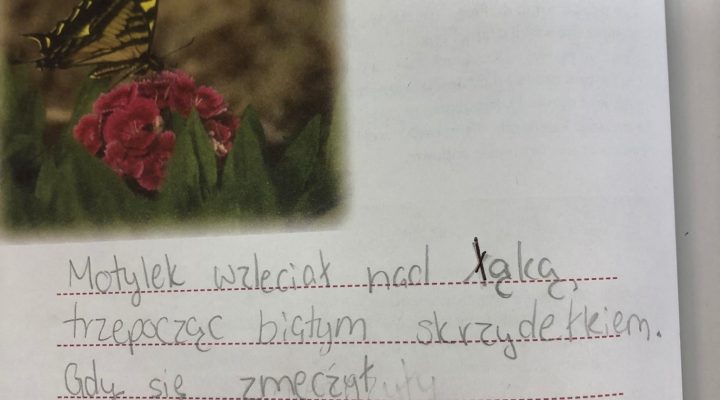 Motylek wzleciał nad łąką,
trzepocząc białym skrzydełkiem.
Gdy się zmęczył